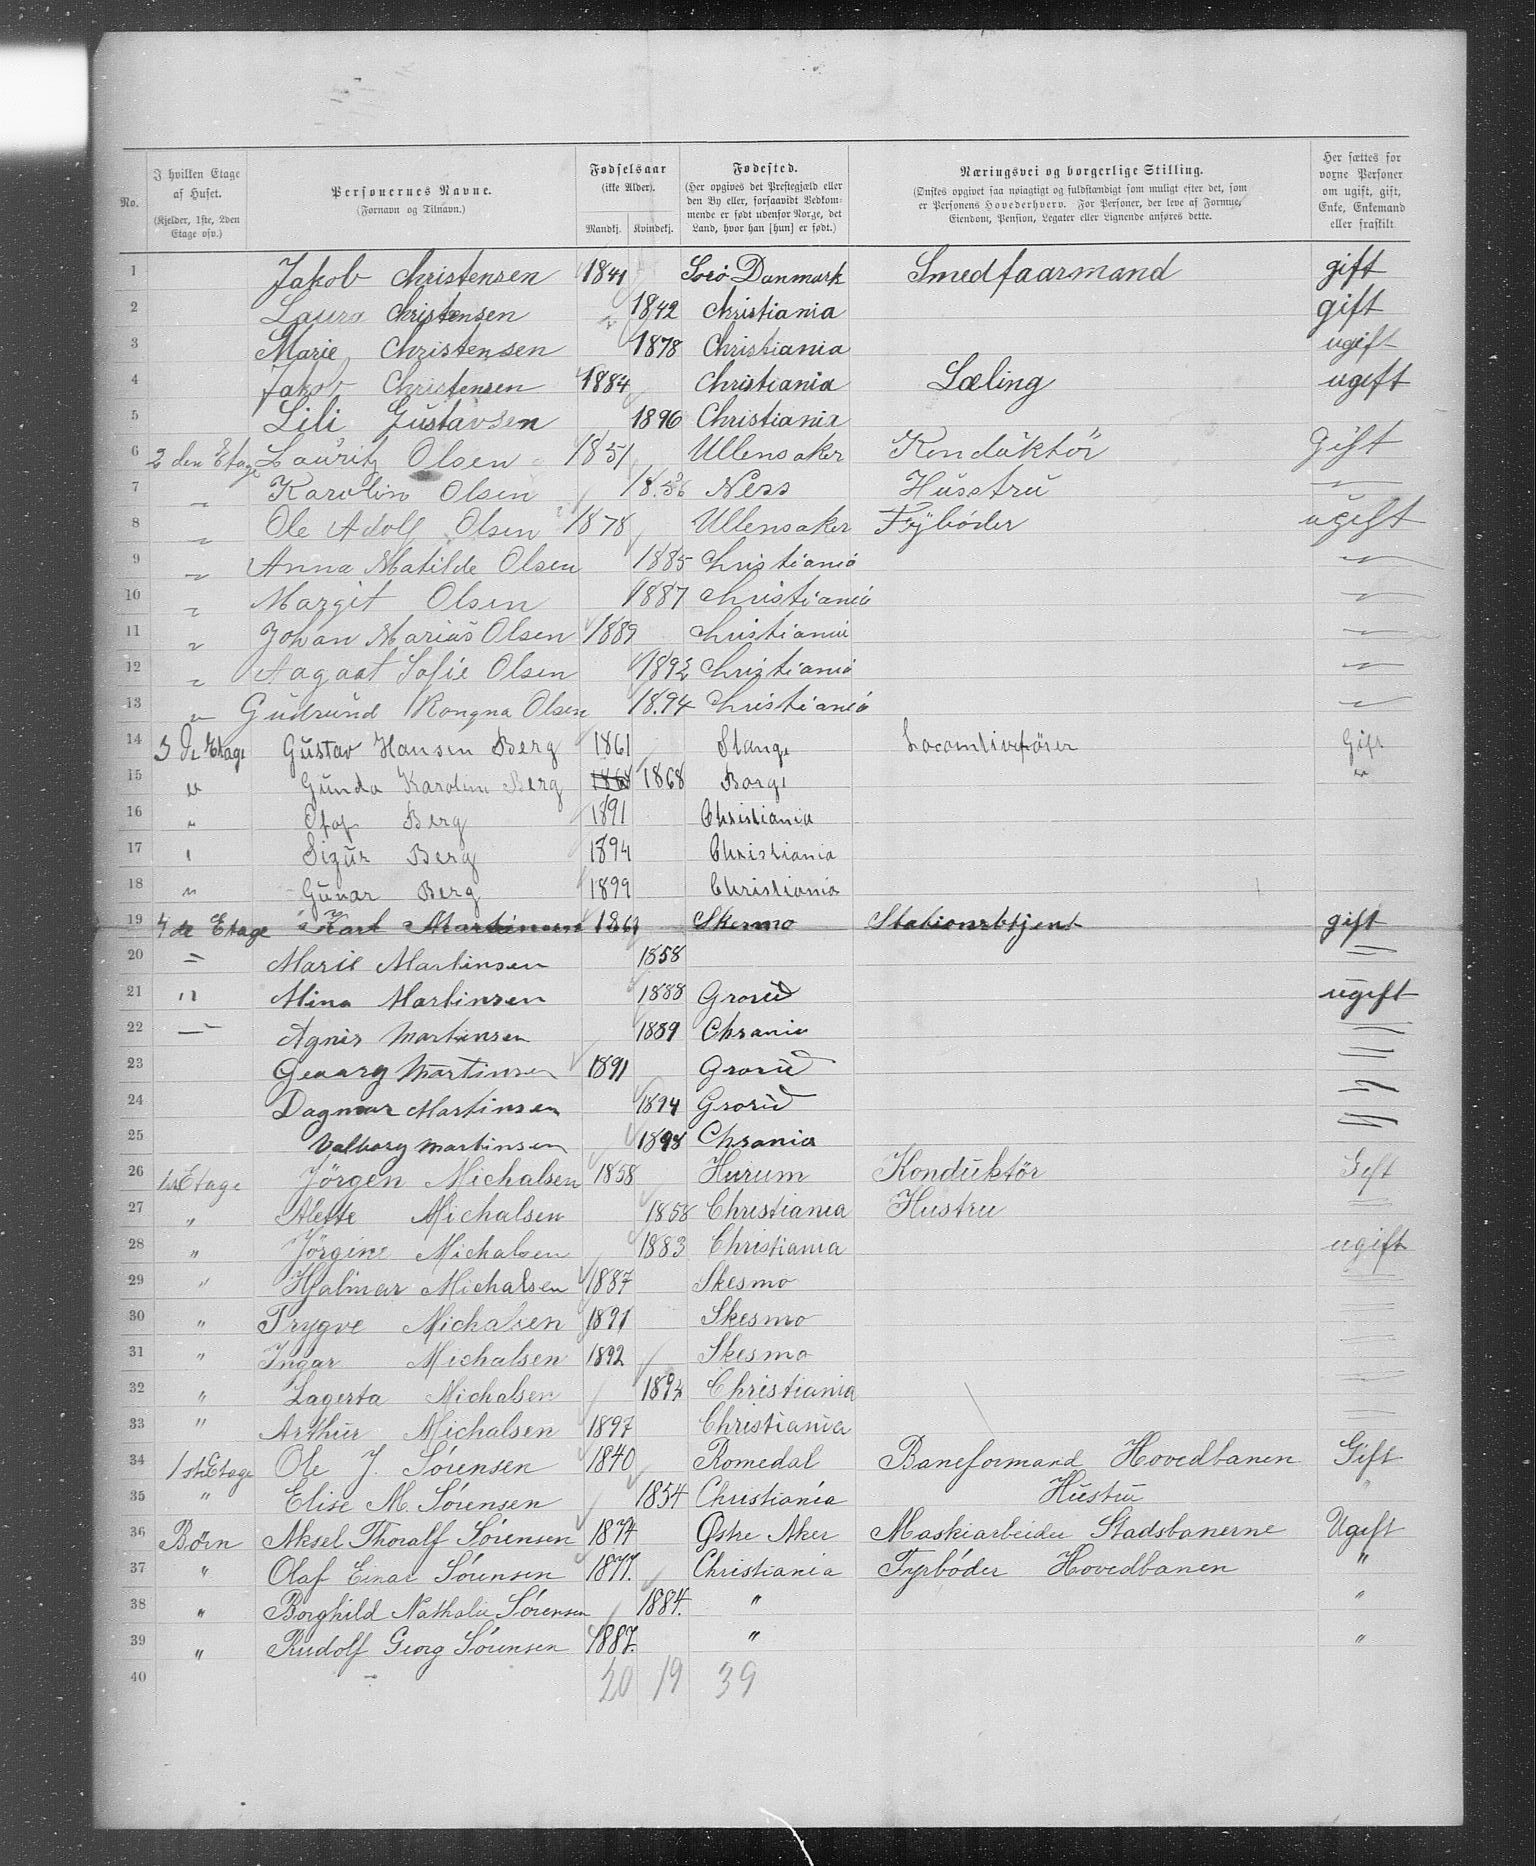 No.
I hvilken Etage af Huset. (Kjelder, 1ste, 2den Etage osv.)
Personernes Navne. (Fornavn og Tilnavn.)
Fødselsaar (ikke Alder). Mandkj. Kvindekj.
Fødested. (Her opgives det Prestegjæld eller den By eller, forsaavidt Vedkommende er født udenfor Norge, det Land, hvor han [hun] er født.)
Næringsvei og borgerlige Stilling. (Ønskes opgivet saa nøiagtigt og fuldstændigt som muligt efter det, som er Personens Hovederhverv. For Personer, der leve af Formue, Eiendom, Pension, Legater eller Lignende anføres dette.)
Her sættes for voxne Personer om ugift, gift, Enke, Enkemand eller fraskilt
1 Jakob Christensen 1841 Sorö Danmark Smedfaarmand gift
2 Laura Christensen 1842 Christiania gift
3 Marie Christensen 1878 Christiania ugift
4 Jakob Christensen 1884 Christiania Læling ugift
5 Lili Gustavsen 1896 Christiania
6 2 den Etage Lauritz Olsen 1851 Ullensaker Konduktör Gift
7 " Karolin Olsen 18.56 Ness Husstru "
8 " Ole Adolf Olsen 1878 Ullensaker Fyböder ugift
9 " Anna Matilde Olsen 1885 Christiania "
10 " Margit Olsen 1887 Christiania "
11 " Johan Marius Olsen 1889 Christiania "
12 " Aagaat Sofie Olsen 1892 Christiania "
13 " Gudrund Rongna Olsen 18.94 Christiania "
14 3 de Etage Gustav Hansen Berg 1861 Stange Locomtivefører Gift
15 " Gunda Karoline Berg 1868 1868 Borge "
16 " Olaf Berg 1891 Christiania
17 " Sigur Berg 1894 Christiania
18 " Gunar Berg 1899 Christiania
19 4 de Etage Karl Martinsen 1861 Skesmo Stationsbtjent gift
20 " Marie Martinsen 1858 "
21 " Mina Martinsen 1888 Grorud ugift
22 " Agnes Martinsen 1889 Chrania "
23 Georg Martinsen 1891 Grorud "
24 Dagmar Martinsen 1894 Grorud "
25 Valborg Martinsen 1898 Chrania "
26 1ste Etage Jörgen Michalsen 1858 Hurum Konduktör Gift
27 " Alette Michalsen 1858 Christiania Hustru "
28 " Jörgine Michalsen 1883 Christiania ugift
29 " Hjalmar Michalsen 1887 Skesmo "
30 " Trygve Michalsen 1891 Skesmo "
31 " Ingar Michalsen 1892 Skesmo "
32 " Lagerta Michalsen 1894 Christiania "
33 " Arthur Michalsen 1897 Christiania "
34 1ste Etage Ole J. Sörensen 1840 Romedal Baneformand Hovedbanen Gift
35 " Elise M. Sörensen 1854 Christiania Hustru "
36 Børn Aksel Thoralf Sörensen 1874 Østre Aker Maskiarbeider Stadsbanerne Ugift
37 " Olaf Einar Sörensen 1877. Christiania Fyrböder Hovedbanen "
38 " Borghild Nathalie Sörensen 1884. " "
39 " Rudolf Georg Sörensen 1887. " "
40 20 19 39